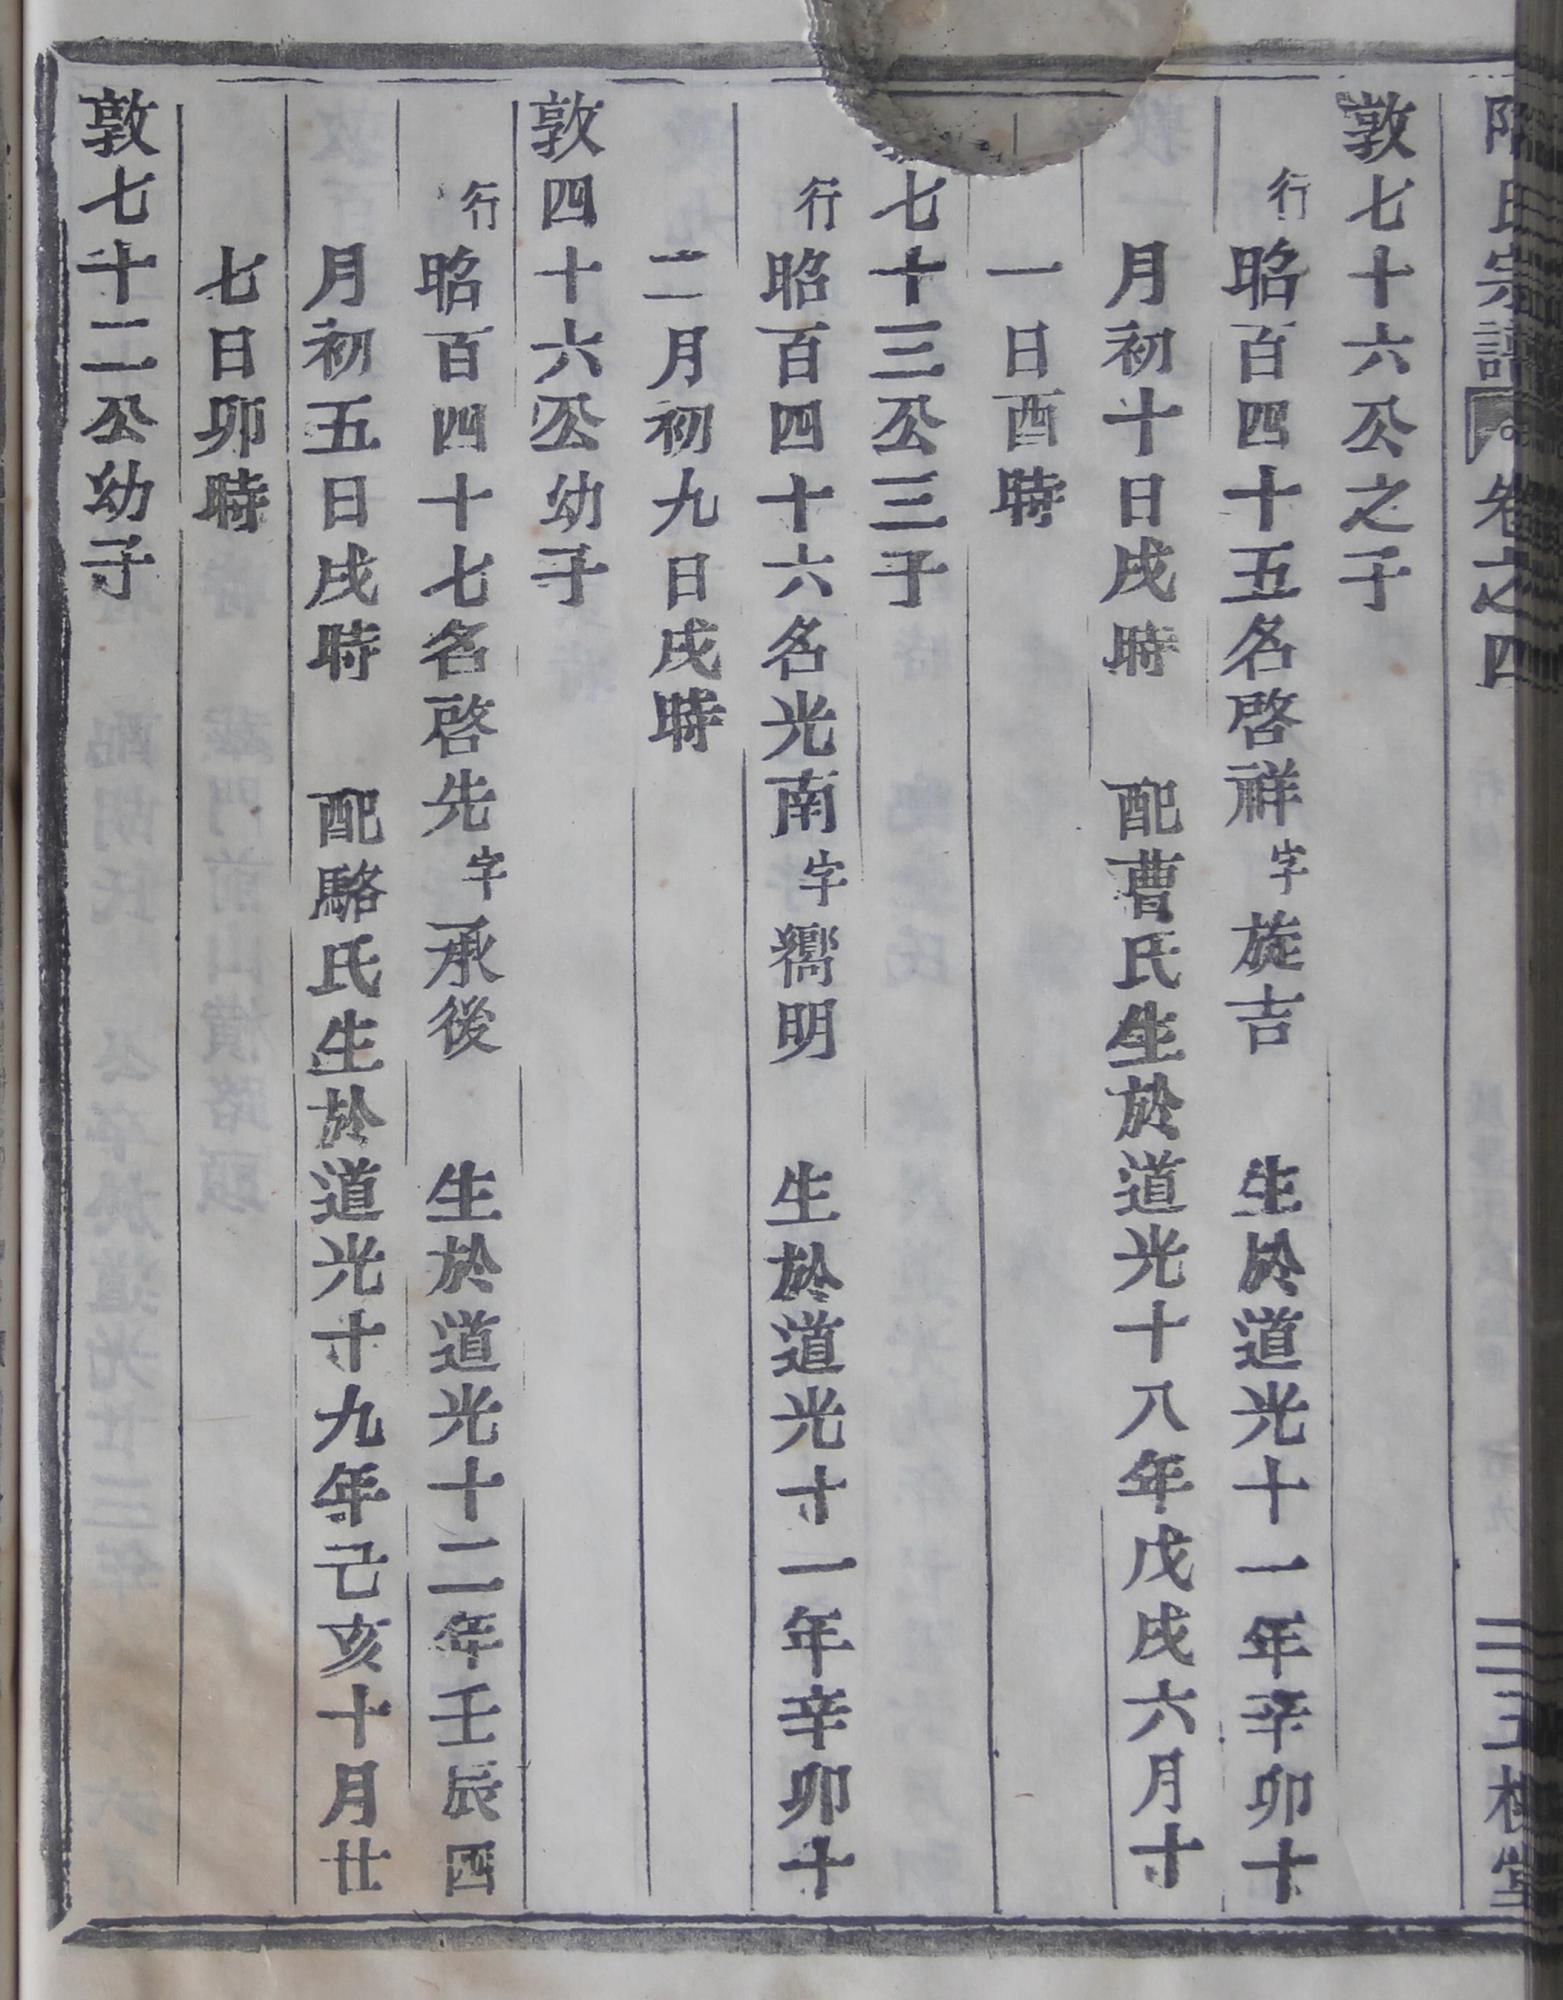 氏宗譜 卷之四 三槐堂
敦七十六公之子
行昭百四十五名啓祥字旋吉 生於道光十一年辛卯十
月初十日戌時 配曹氏生於道光十八年戊戌六月十
一日酉時
七十三公三子
行昭百四十六名光南字嚮明 生於道光十一年辛卯十
二月初九日戌時
敦四十六公幼子
行昭百四十七名啓先字承後 生於道光十二年壬辰四
月初五日戌時 配駱氏生於道光十九年己亥十月廿
七日卯時
敦七十二公幼子